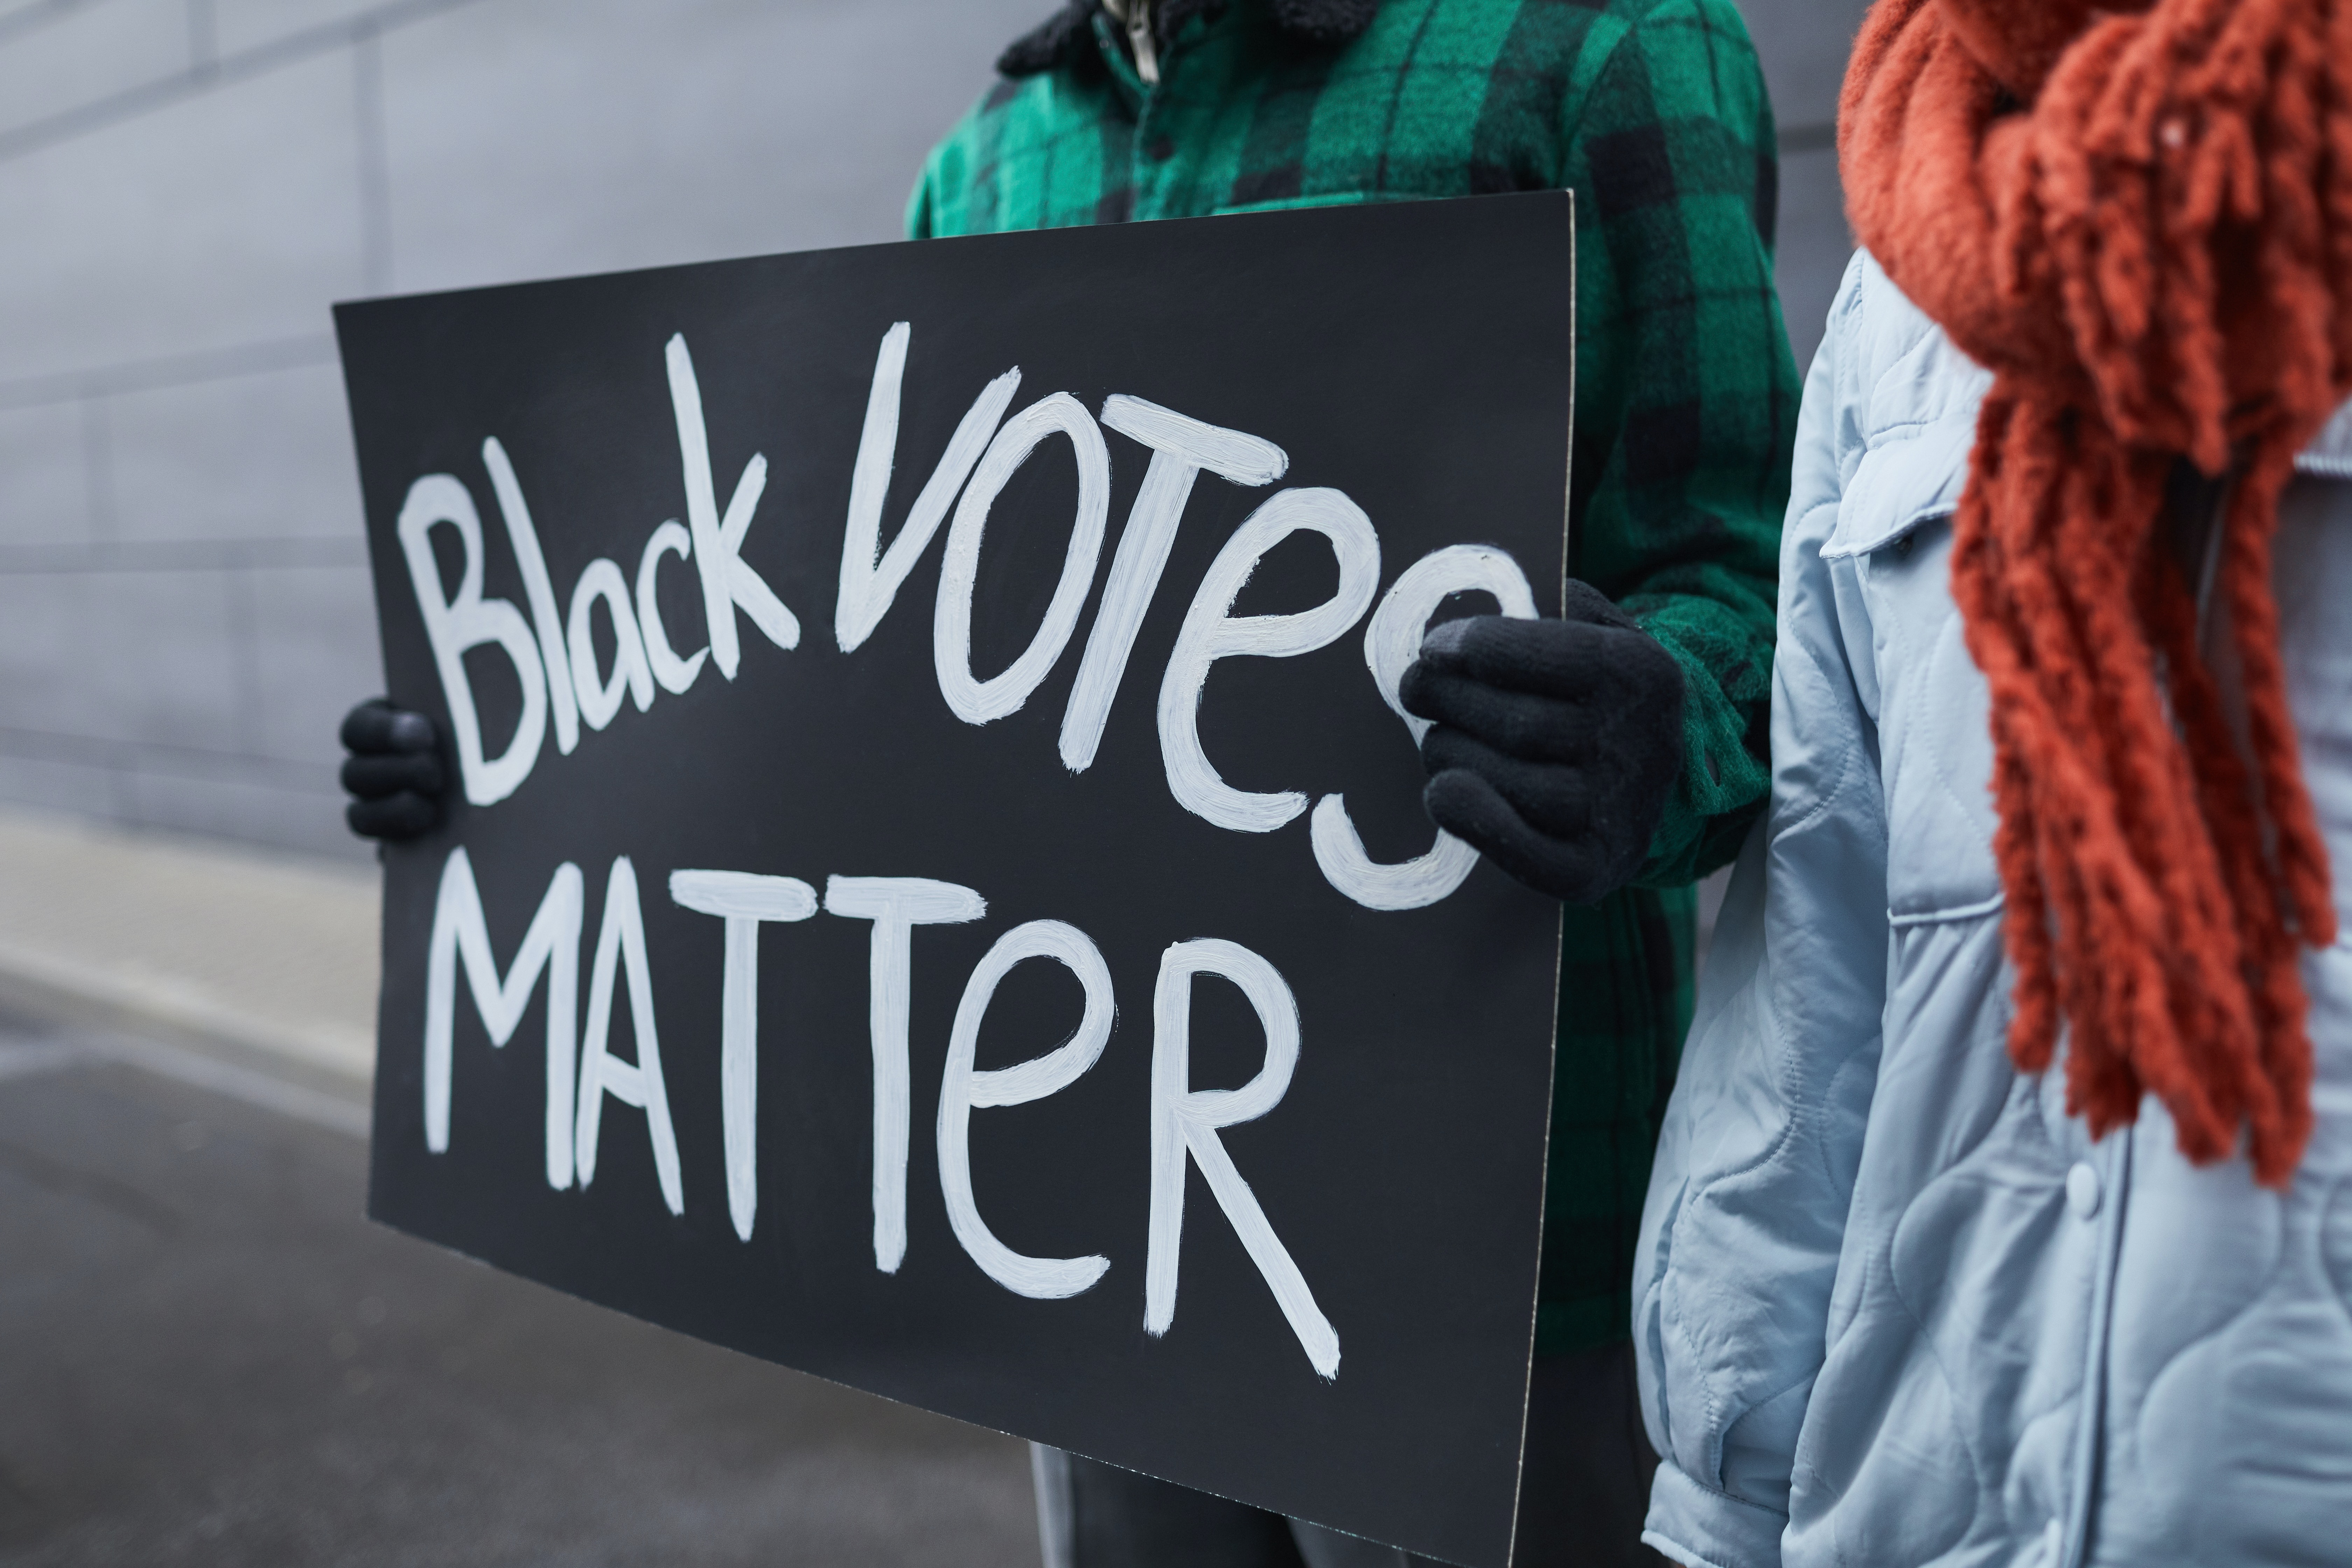 Black VOTes
MATTeR